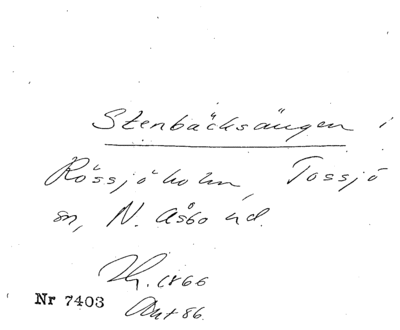 Stenbäcksängen i
Rössjöholm, Tossjö
sn, N. Åsbo hd.
1866
Nr 7403
86.